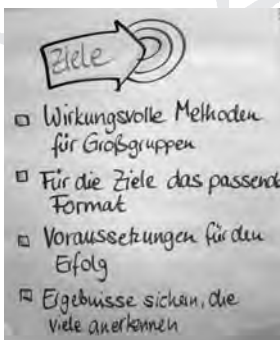 Ziele
Wirkungsvolle Methoden
für Großgruppen
Für die Ziele das passende
Format
Voraussetzungen für den
Erfolg
Ergebnisse sichern, die
viele anerkennen